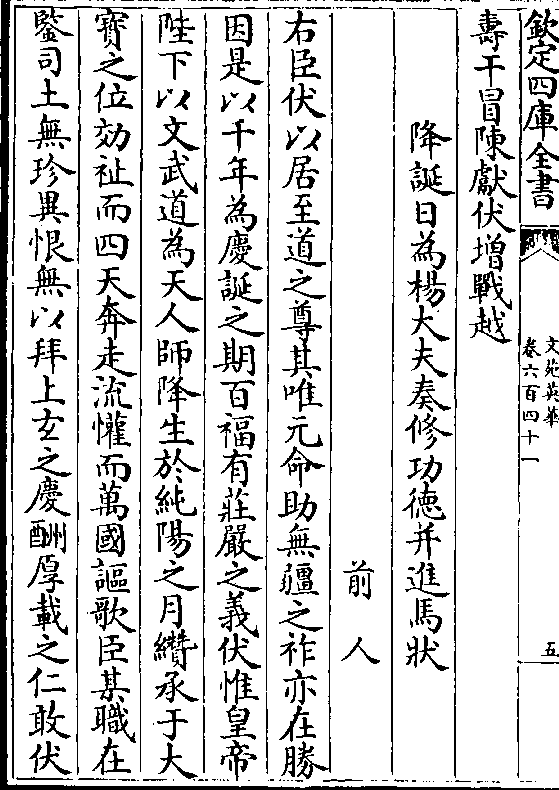 欽定四庫全書
文苑英華
卷六百四十一
五
壽干冒陳獻伏增戰越
降誕日為楊大夫奏修功德并進馬狀
前人
右臣伏以居至道之尊其唯元命助無疆之祚亦在勝
因是以千年為慶誕之期百福有莊嚴之義伏惟皇帝
陛下以文武道為天人師降生於純陽之月纘承于大
寳之位効祉而四天奔走流懽而萬國謳歌臣某職在
監司土無珍異恨無以拜上玄之慶酬厚載之仁敢伏